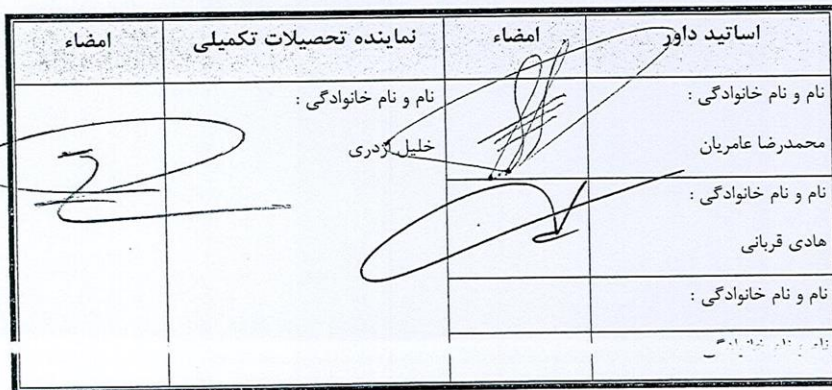 اساتید داور	امضاء	نماینده تحصیلات تکمیلی	امضاء
نام و نام خانوادگی :
محمدرضا عامریان
نام و نام خانوادگی :
خلیل اژدری
نام و نام خانوادگی :
هادی قربانی
نام و نام خانوادگی :
نام و نام خانوادگی